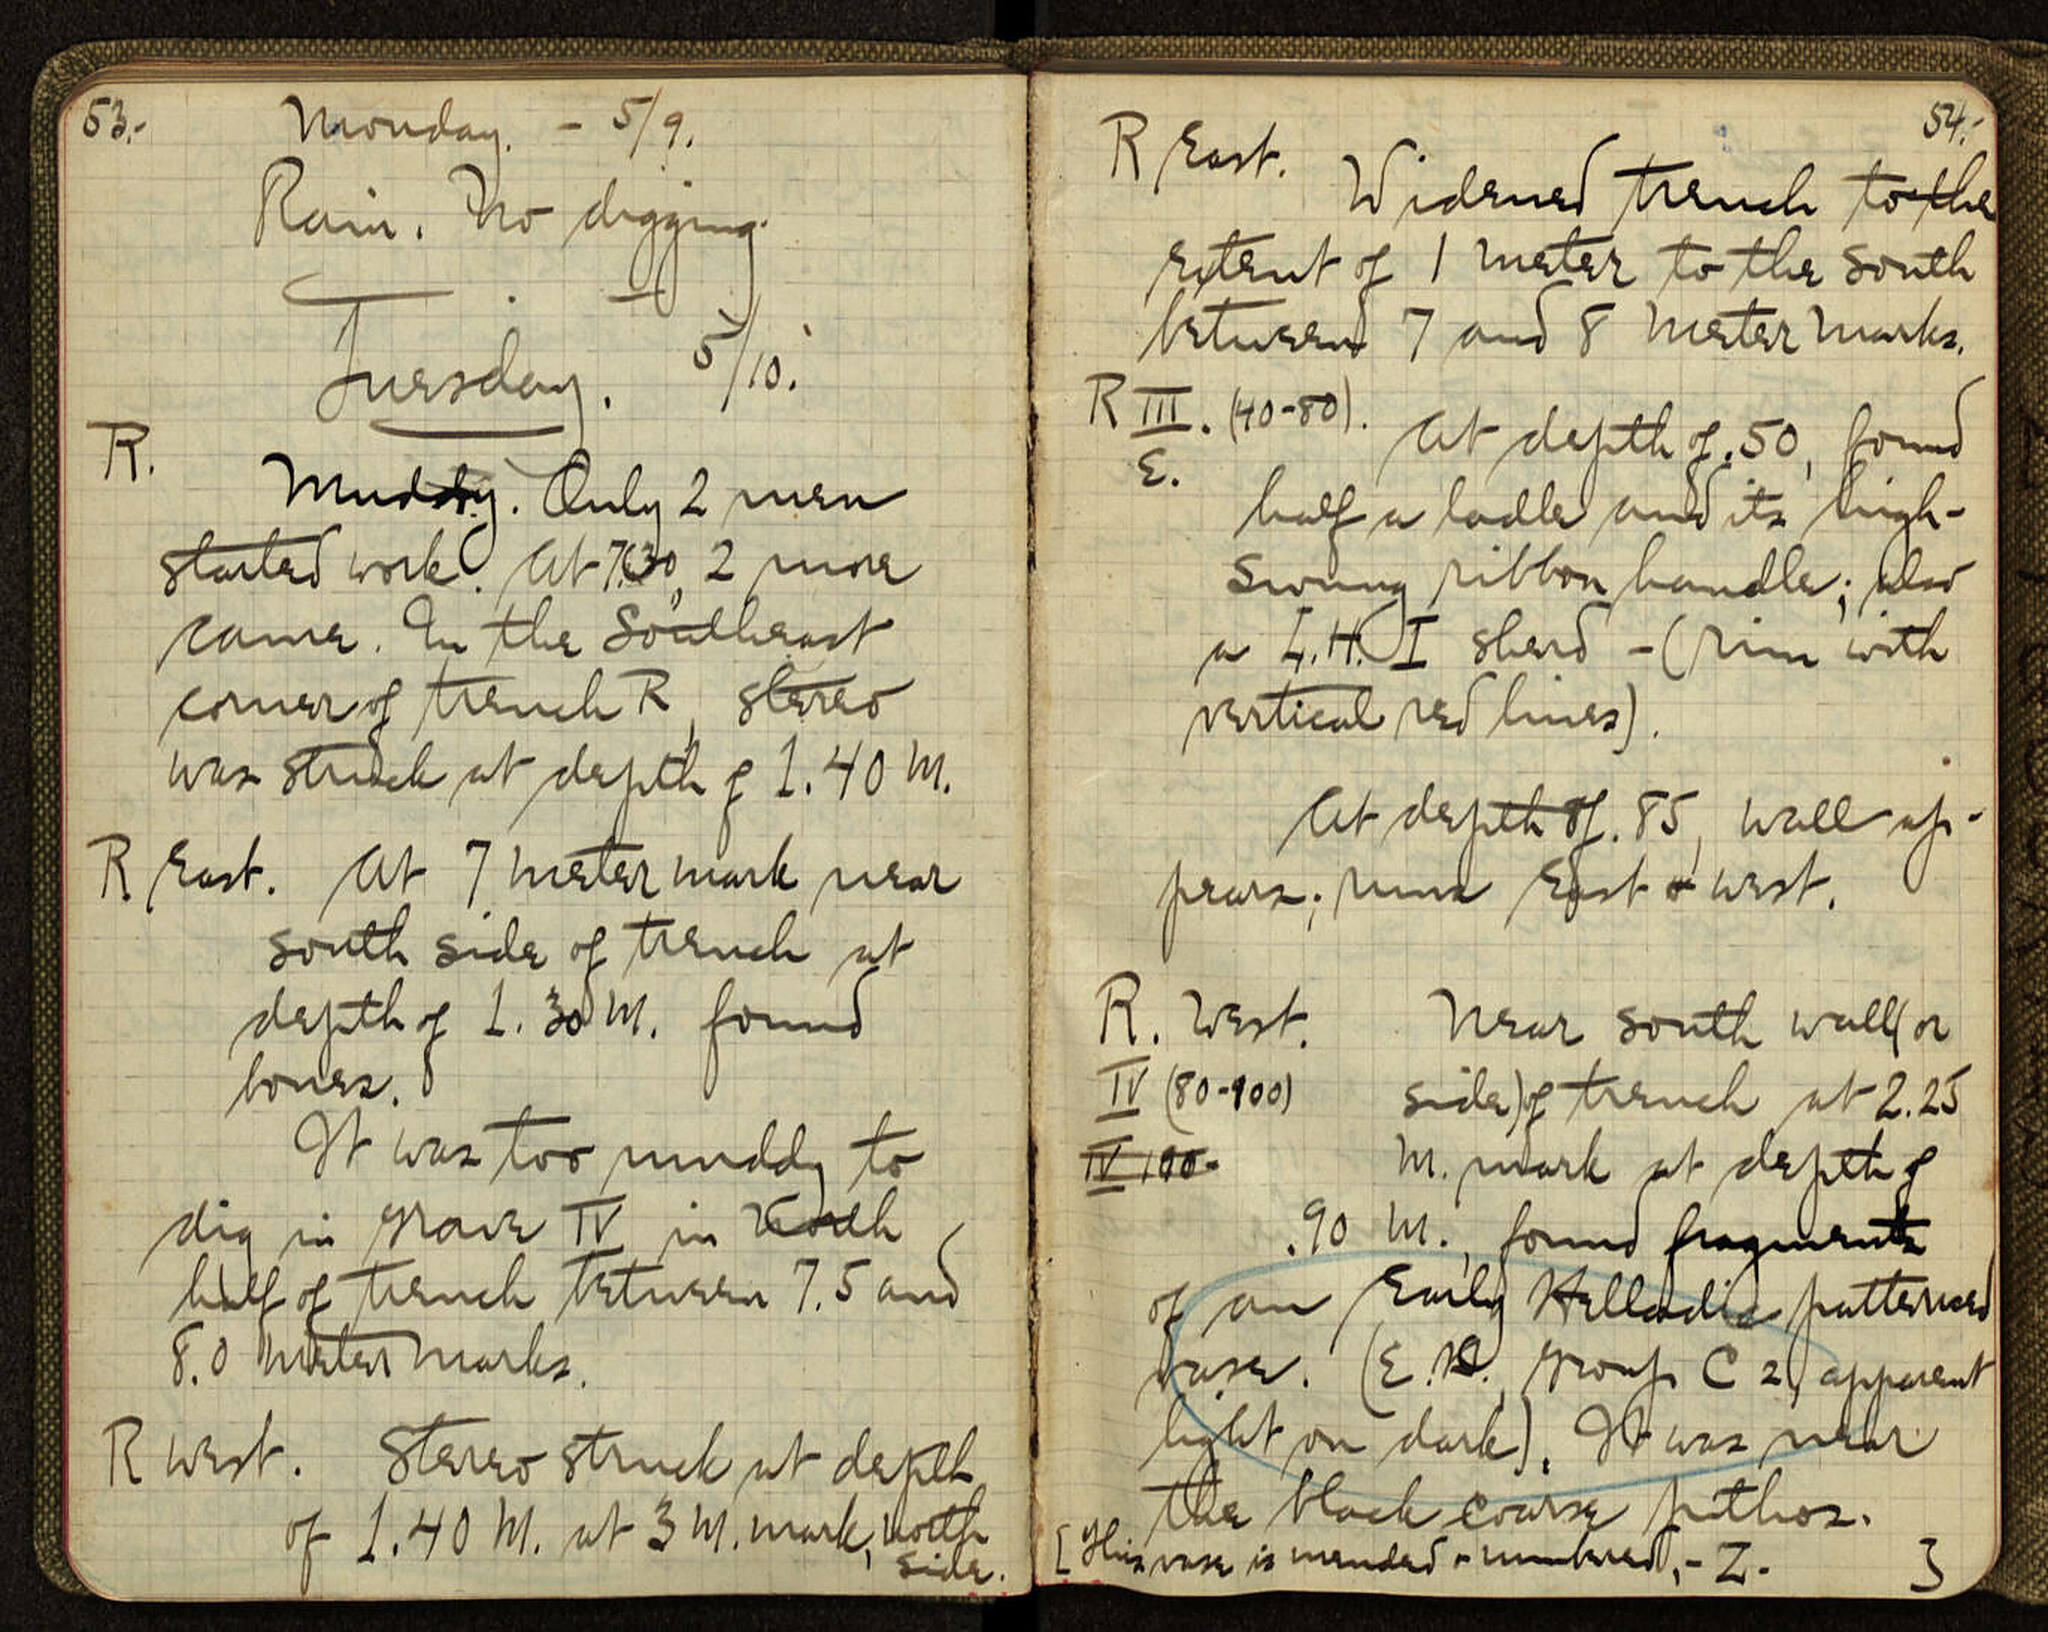 53.-
Monday. - 5/9.
Rain. No digging.
Tuesday. 5/10.
R.
Muddy. Only 2 men
started work. At 7.30, 2 more
came. In the Southeast
corner of trench R, stereo
was struck at depth of 1.40 M.
R East. At 7 meter mark near
south side of trench at
depth of 1.30 M. found
bones.
It was too muddy to
dig in grave IV in South
half of trench between 7.5 and
8.0 meter marks.
R West. Stereo struck at depth
of 1.40 M. at 3 M. mark, north
side.
54.-
R East. Widened trench to the
extent of 1 meter to the south
between 7 and 8 meter marks.
R III. (40-80). At depth of .50, found
E.
half a ladle and its high-
swung ribbon handle; also
a L.H. I sherd - (rim with
vertical red lines).
At depth of .85, wall ap-
pears; runs East & West.
R. West. Near south wall (or
IV (80-100) side) of trench at 2.25
IV 100- M. mark at depth of
.90 M., found fragments
of an Early Helladic patterned
vase. (E.H. group C 2, apparent
light on dark). It was near
the black coarse pithos.
[This vase is mended & numbered, - Z. - ]